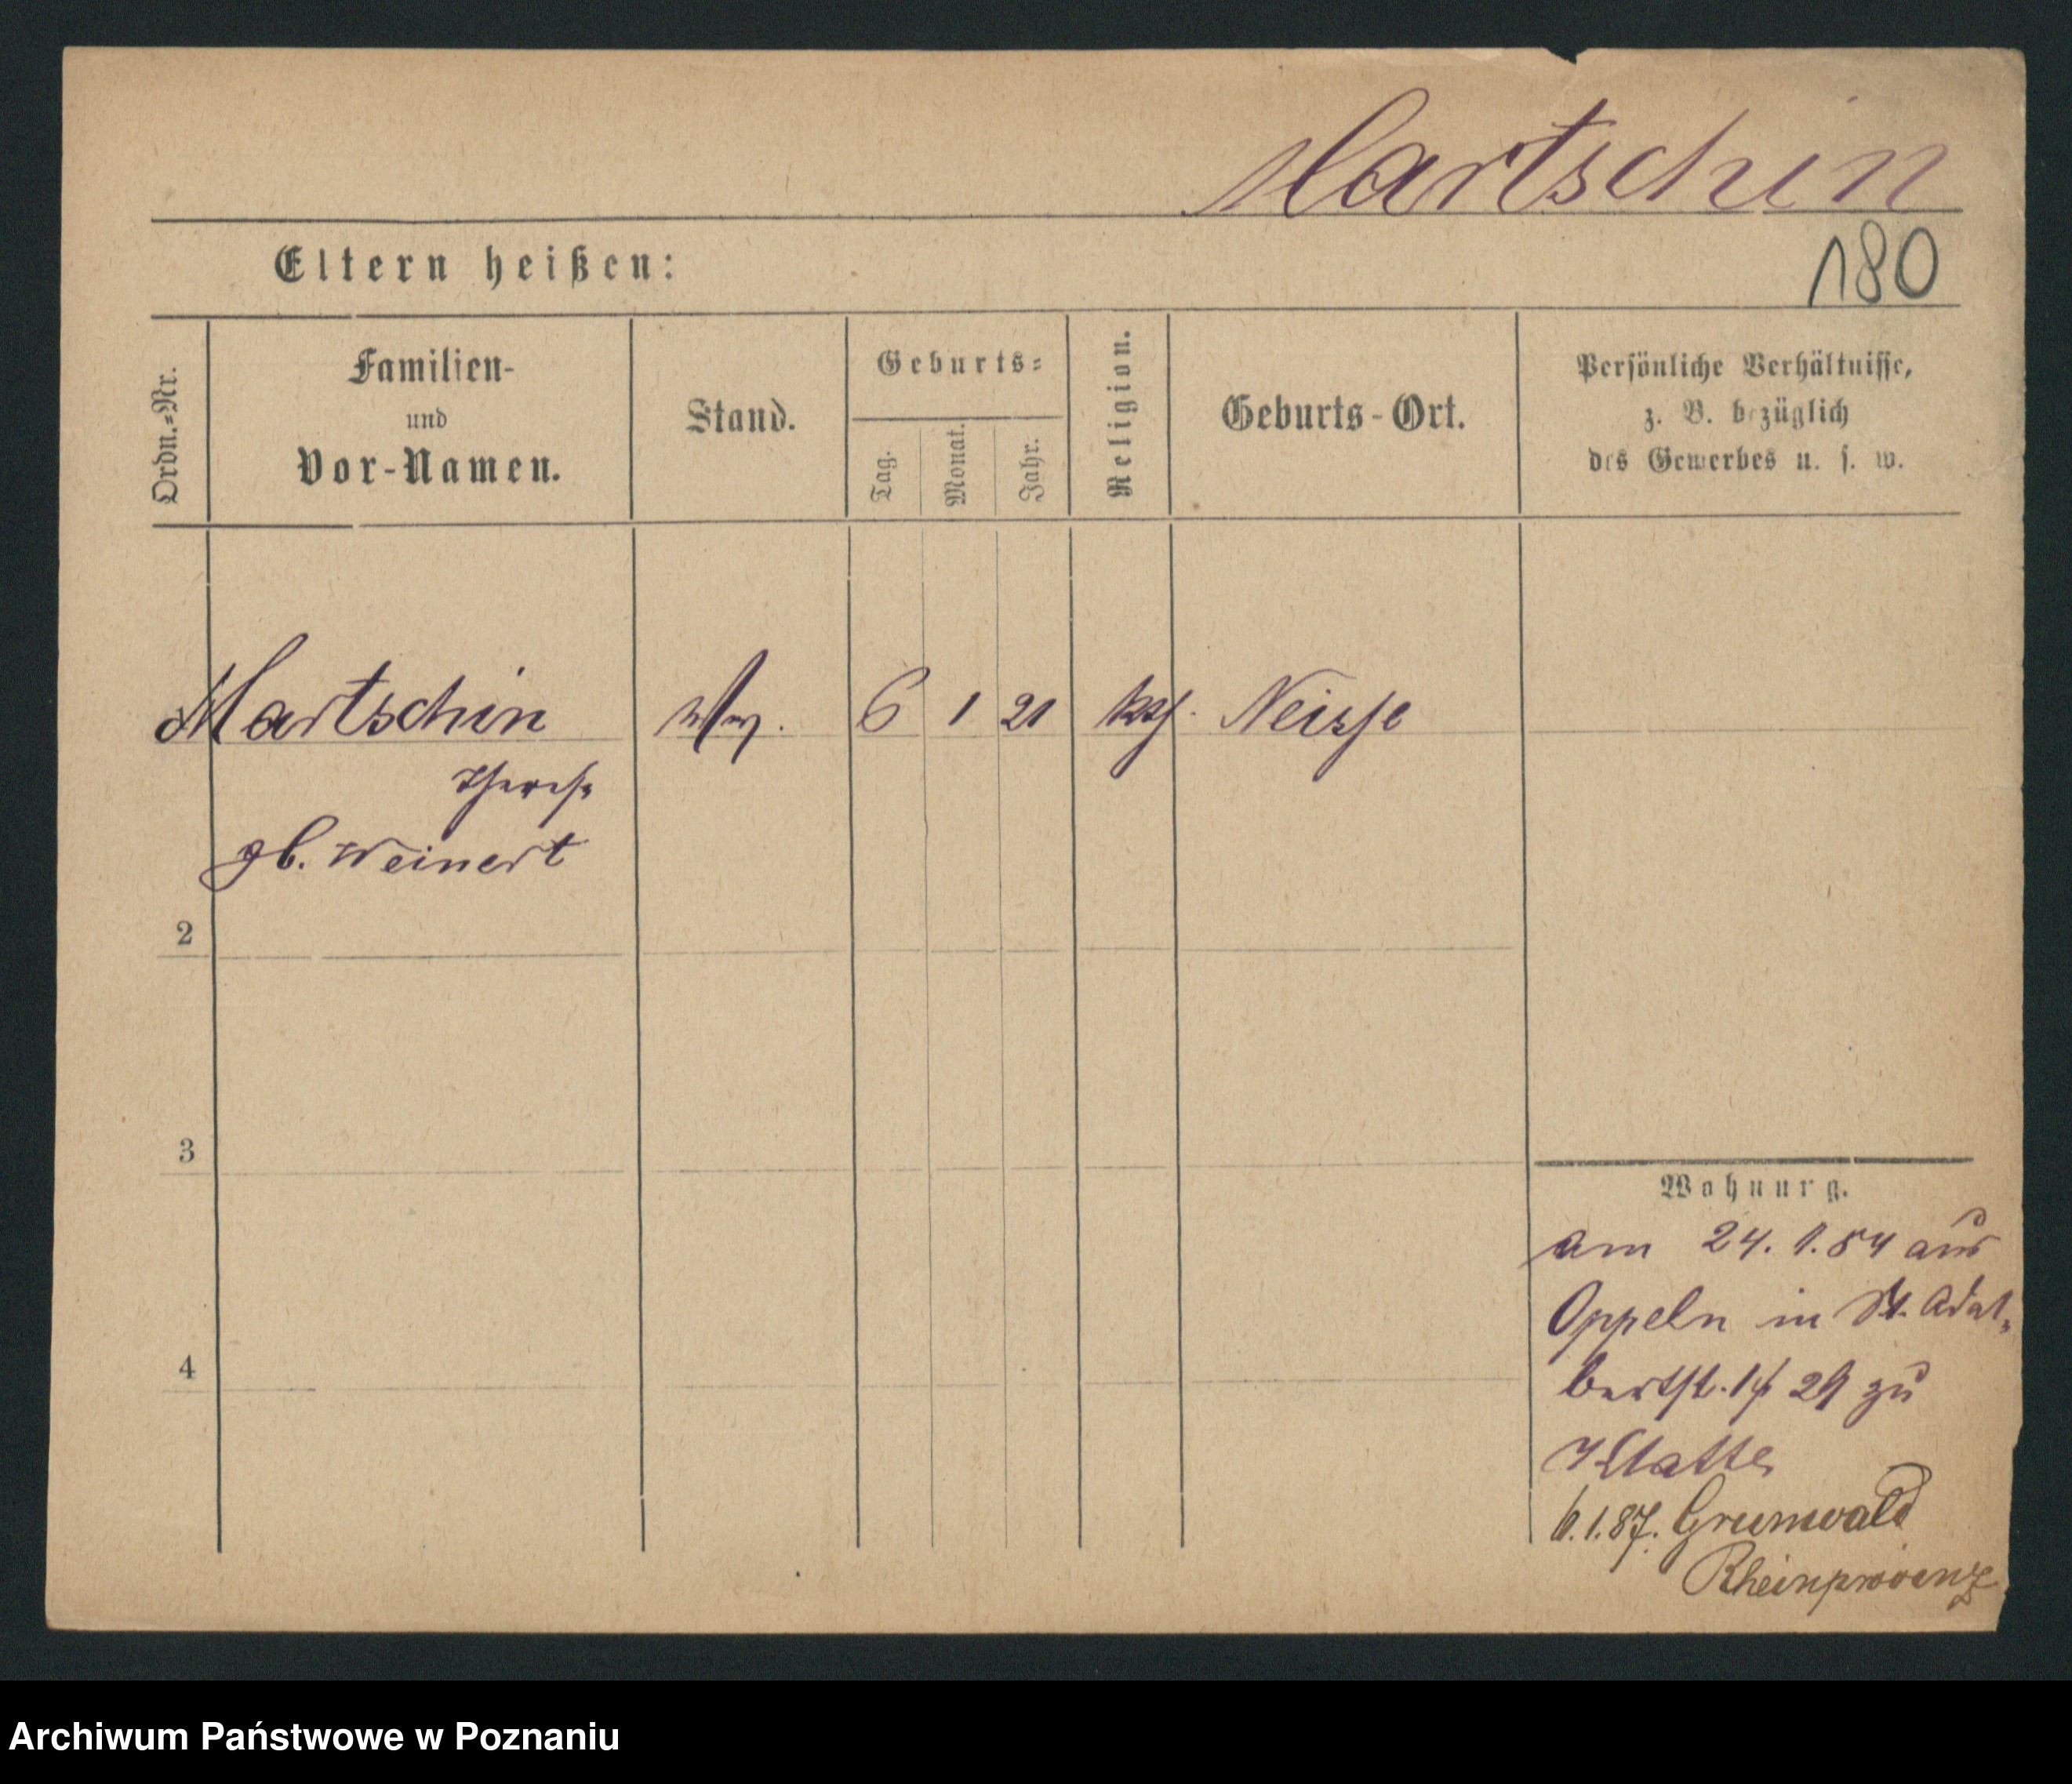 Martschin
180
Eltern heißen:
Ordn.=Nr.
Familien-
und
Vor-Namen.
Stand.
Geburts=
Tag.
Monat.
Jahr.
Religion.
Geburts-Ort.
Persönliche Verhältnisse,
z. B. bezüglich
des Gewerbes u. s. w.
Martschin 6 1 21 Neisse
Therese
gb. Weinert
2
3
4
Wohnung.
am 24. 1. 84 aus
Oppeln in St. Adal-
bertst. 29 zu
6.1.87. Grunwald
Rheinprovinz
Archiwum Państwowe w Poznaniu